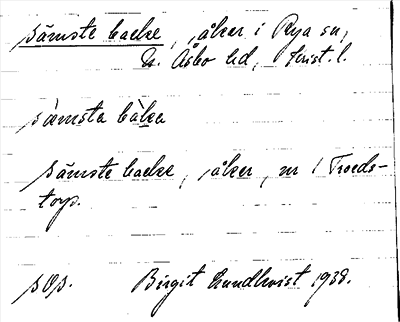 sämste backe, åker i Rya sn,
N. Åsbo hd, Krist. l.
sä̀msta bàka
sämste backe, åker, nr 1 Troeds-
torp.
sOp. Birgit Lundkvist 1938.